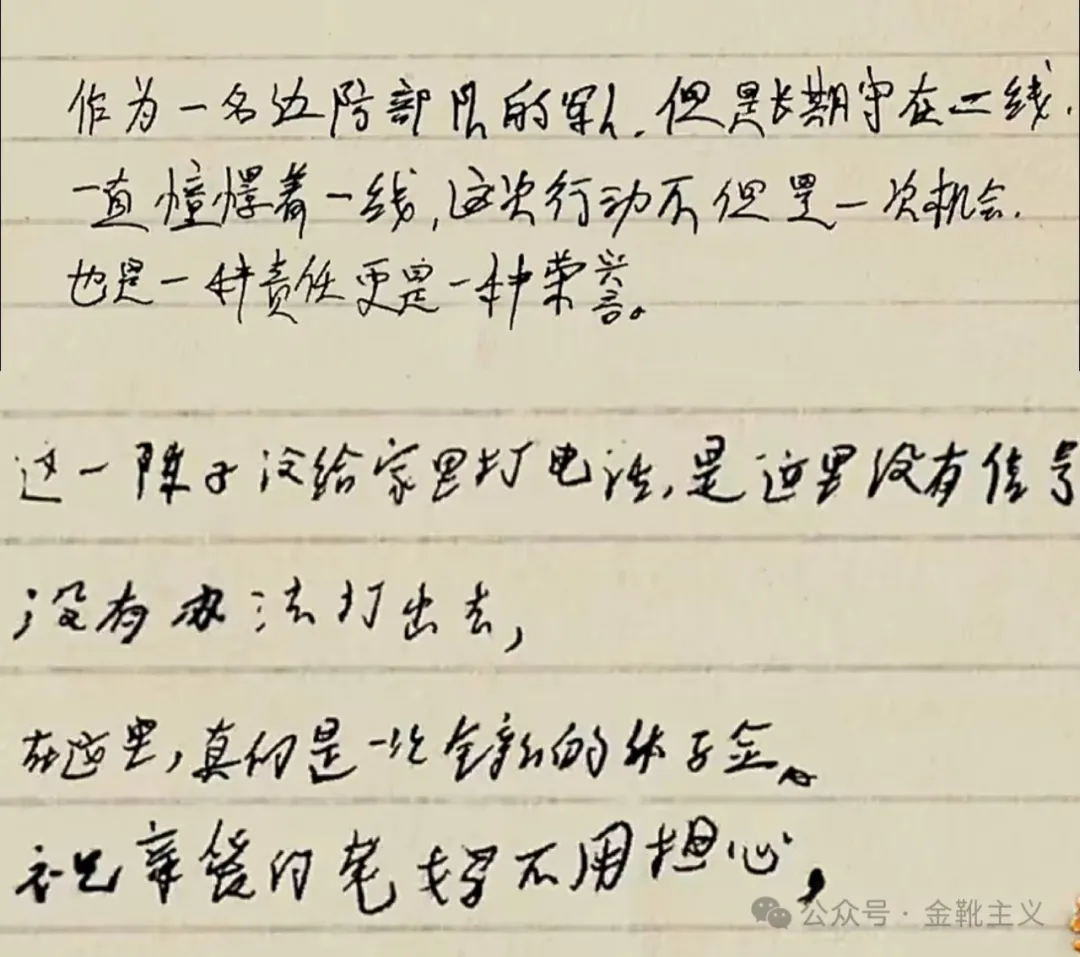 作为一名边防部队的军人,但是长期守在二线,
一直憧憬着一线,这次行动不但是一次机会,
也是一种责任更是一种荣誉。
这一阵子没给家里打电话,是这里没有信号
没有办法打出去,
在这里,真的是一次全新的体验。
祝亲爱的爸妈不用担心,
公众号·金靴主义